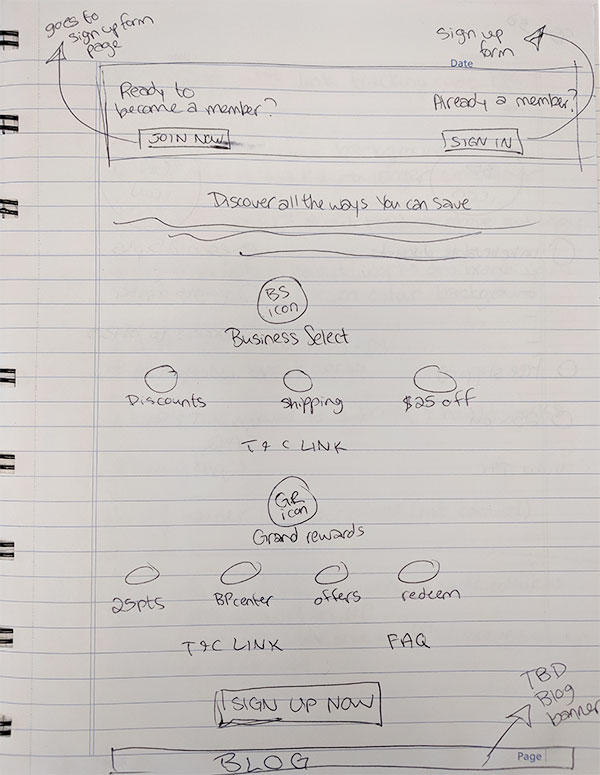 goes to
sign up form
page
sign up
form
Date
Ready to
become a member?
Already a member?
JOIN NOW
SIGN IN
Discover all the ways You can save
BS
icon
Business Select
Discounts
shipping
$25 off
T & C LINK
GR
icon
Grand rewards
25pts
BPcenter
offers
redeem
T&C LINK
FAQ
SIGN UP NOW
TBD
Blog
banner
BLOG
Page